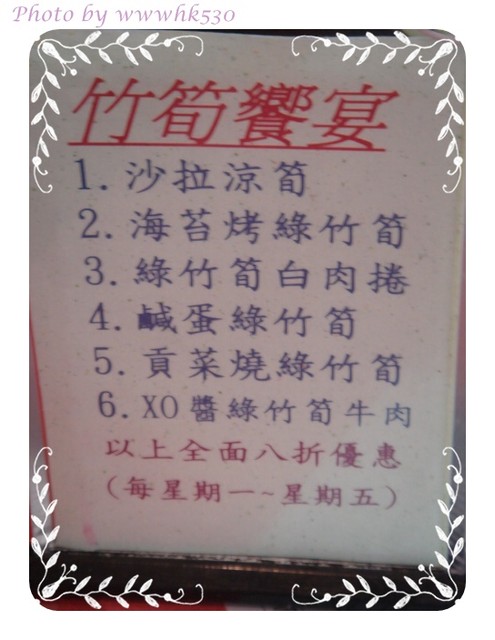 Photo by wwwhk530
竹筍饗宴
1. 沙拉涼筍
2. 海苔烤綠竹筍
3. 綠竹筍白肉捲
4. 鹹蛋綠竹筍
5. 貢菜燒綠竹筍
6. XO醬綠竹筍牛肉
以上全面八折優惠
(每星期一~星期五)